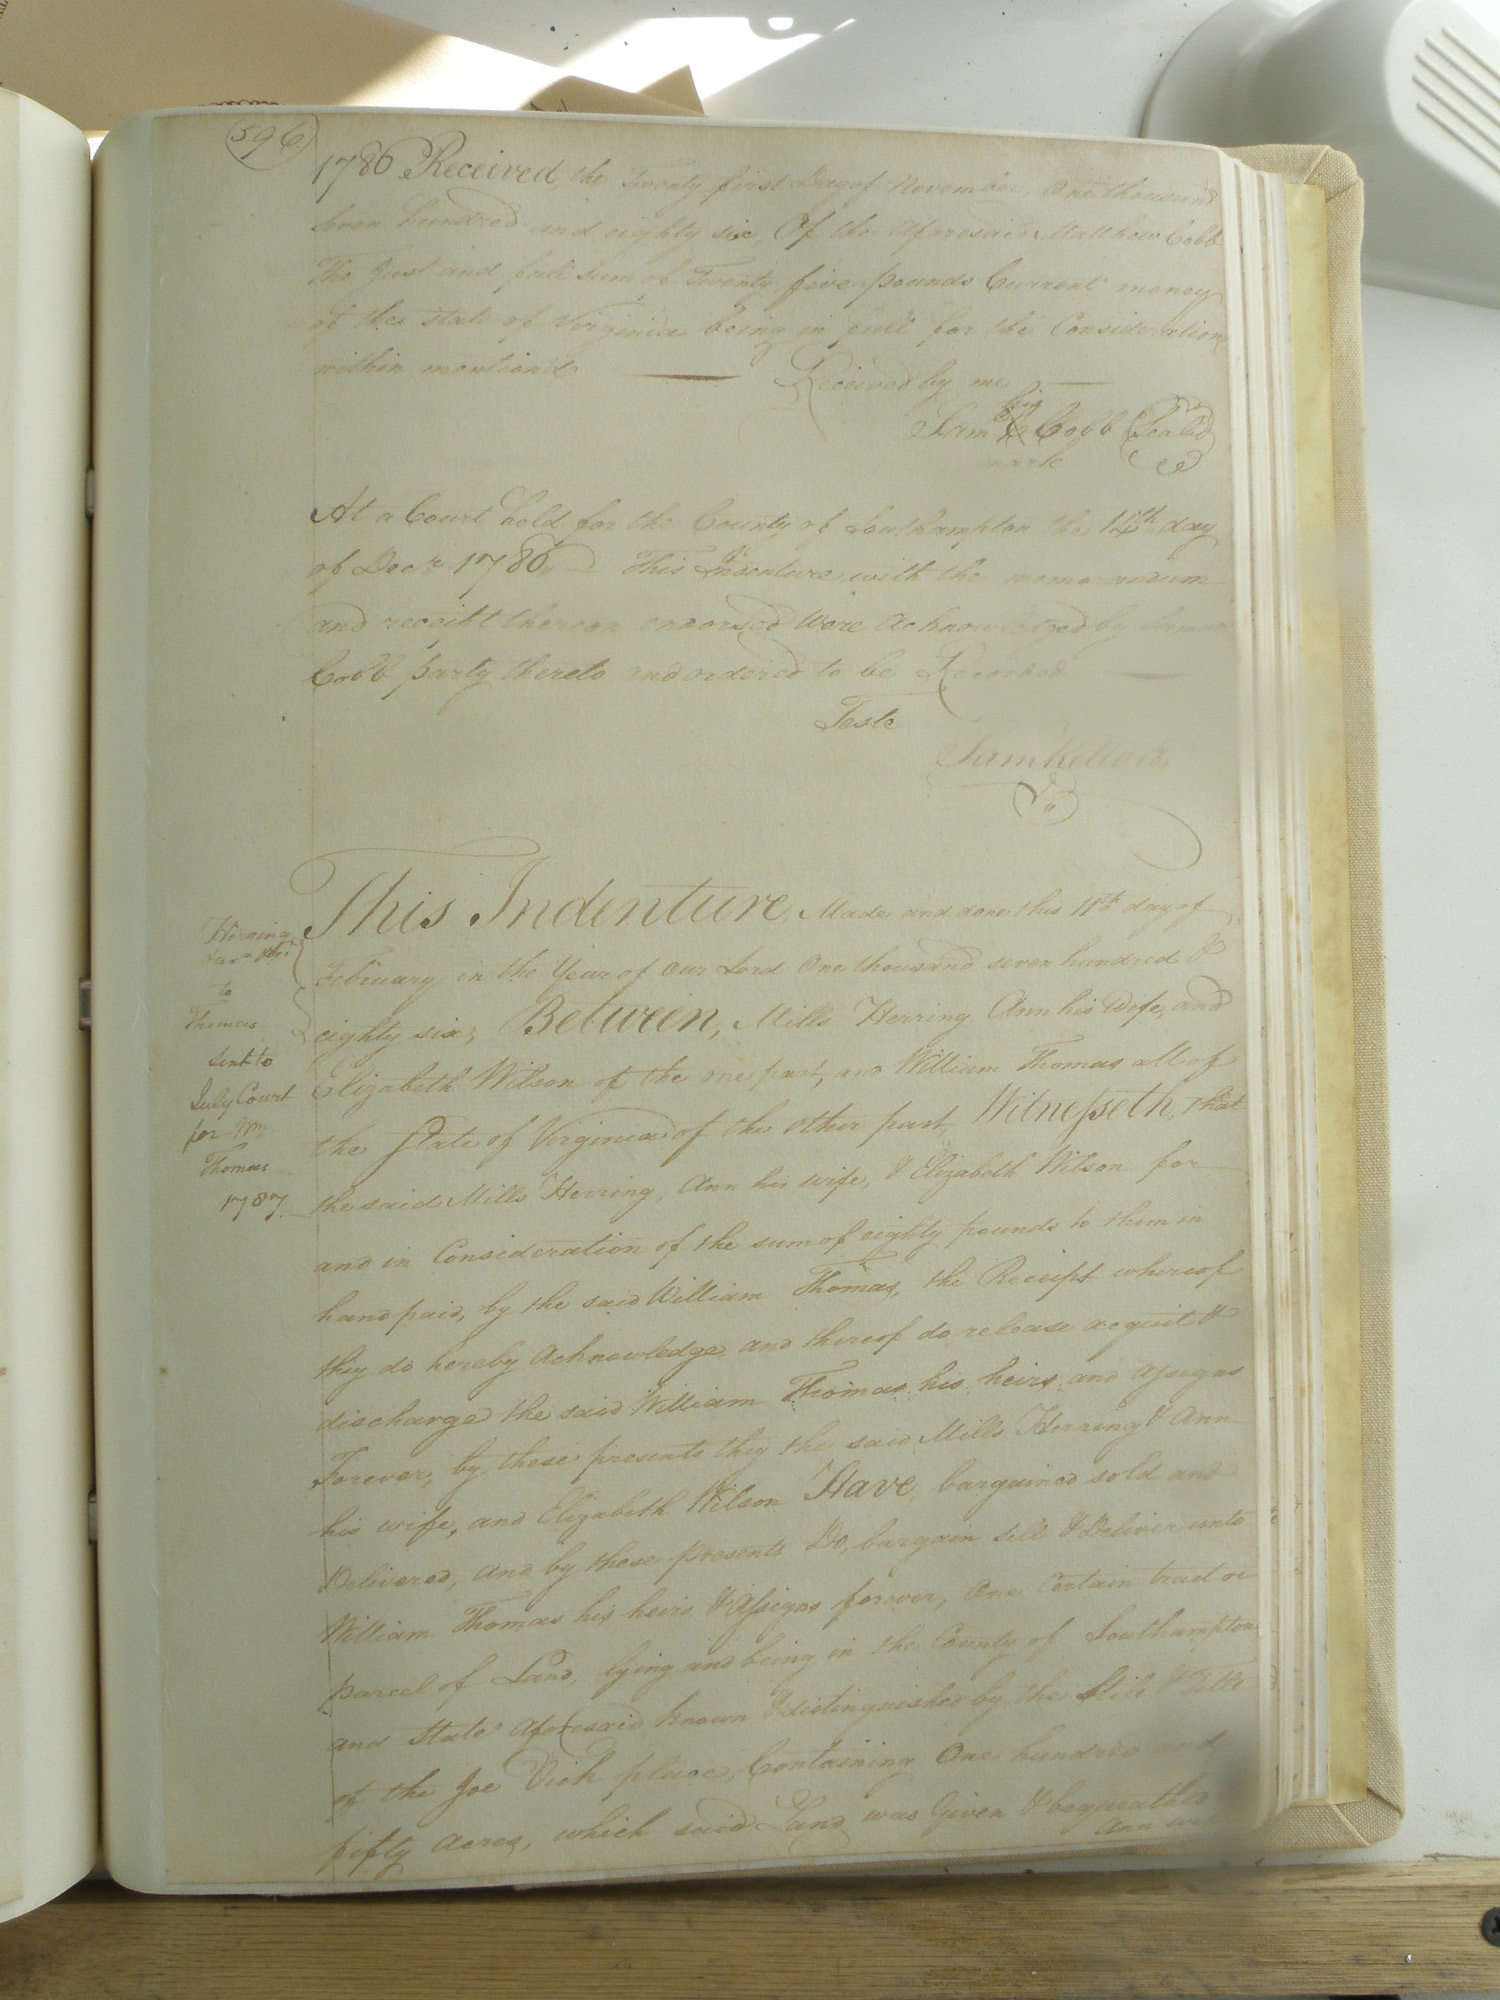 596
1786 Received the Twenty first Day of November One thousand
seven hundred and eighty six Of the Aforesaid Matthew Cobb
The Just and full sum of Twenty five pounds Current money
of the state of Virginia being in full for the Consideration
within mention'd Received by me
his
Sam X Cobb Seal'd
mark
At a Court held for the County of Southampton the 14th day
of Decr 1786 This Indenture with the memorandum
and receipt thereon endorsed Were Acknowledged by
Cobb party thereto and ordered to be Recorded
Teste
Sam Kello
This Indenture Made and done this 11th day of
February in the Year of our Lord One thousand seven hundred &
eighty six, Between, Mills Herring Ann his Wife, and
Elizabeth Wilson of the one part, and William Thomas all of
the State of Virginia of the other part, Witnesseth, that
the said Mills Herring, Ann his wife, & Elizabeth Wilson for
and in Consideration of the sum of eighty pounds to them in
hand paid, by the said William Thomas, the Receipt whereof
they do hereby Acknowledge and thereof do release acquit &
discharge the said William Thomas his heirs and assigns
Forever, by these presents they the said Mills Herring & Ann
his wife, and Elizabeth Wilson Have bargained sold and
Delivered, and by these presents Do, bargain sell & Deliver unto
William Thomas his heirs & assigns forever, One Certain tract or
parcel of Land, lying and being in the County of Southampton
and State Aforesaid known & distinguished by the Stile & Title
of the Joe Vick place, Containing One hundred and
fifty acres, which said Land was Given & bequeathed
Ann
Herring
to
Thomas
Sent to
July Court
for Wm
Thomas
1787